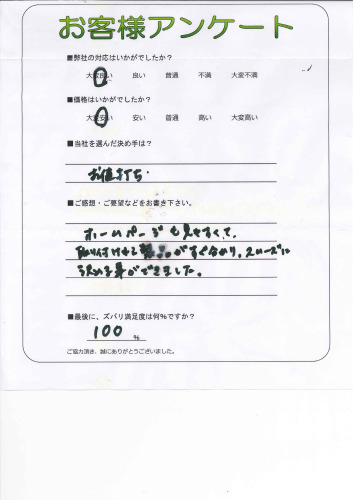 お客様アンケート
■弊社の対応はいかがでしたか？
大変良い 良い 普通 不満 大変不満
■価格はいかがでしたか？
大変安い 安い 普通 高い 大変高い
■当社を選んだ決め手は？
お値打ち.
■ご感想・ご要望などをお書き下さい。
ホームページも見やすくて、
取り付ける製品がすぐ分かり、スムーズに
決める事ができました。
■最後に、ズバリ満足度は何%ですか？
100 %
ご協力頂き、誠にありがとうございました。